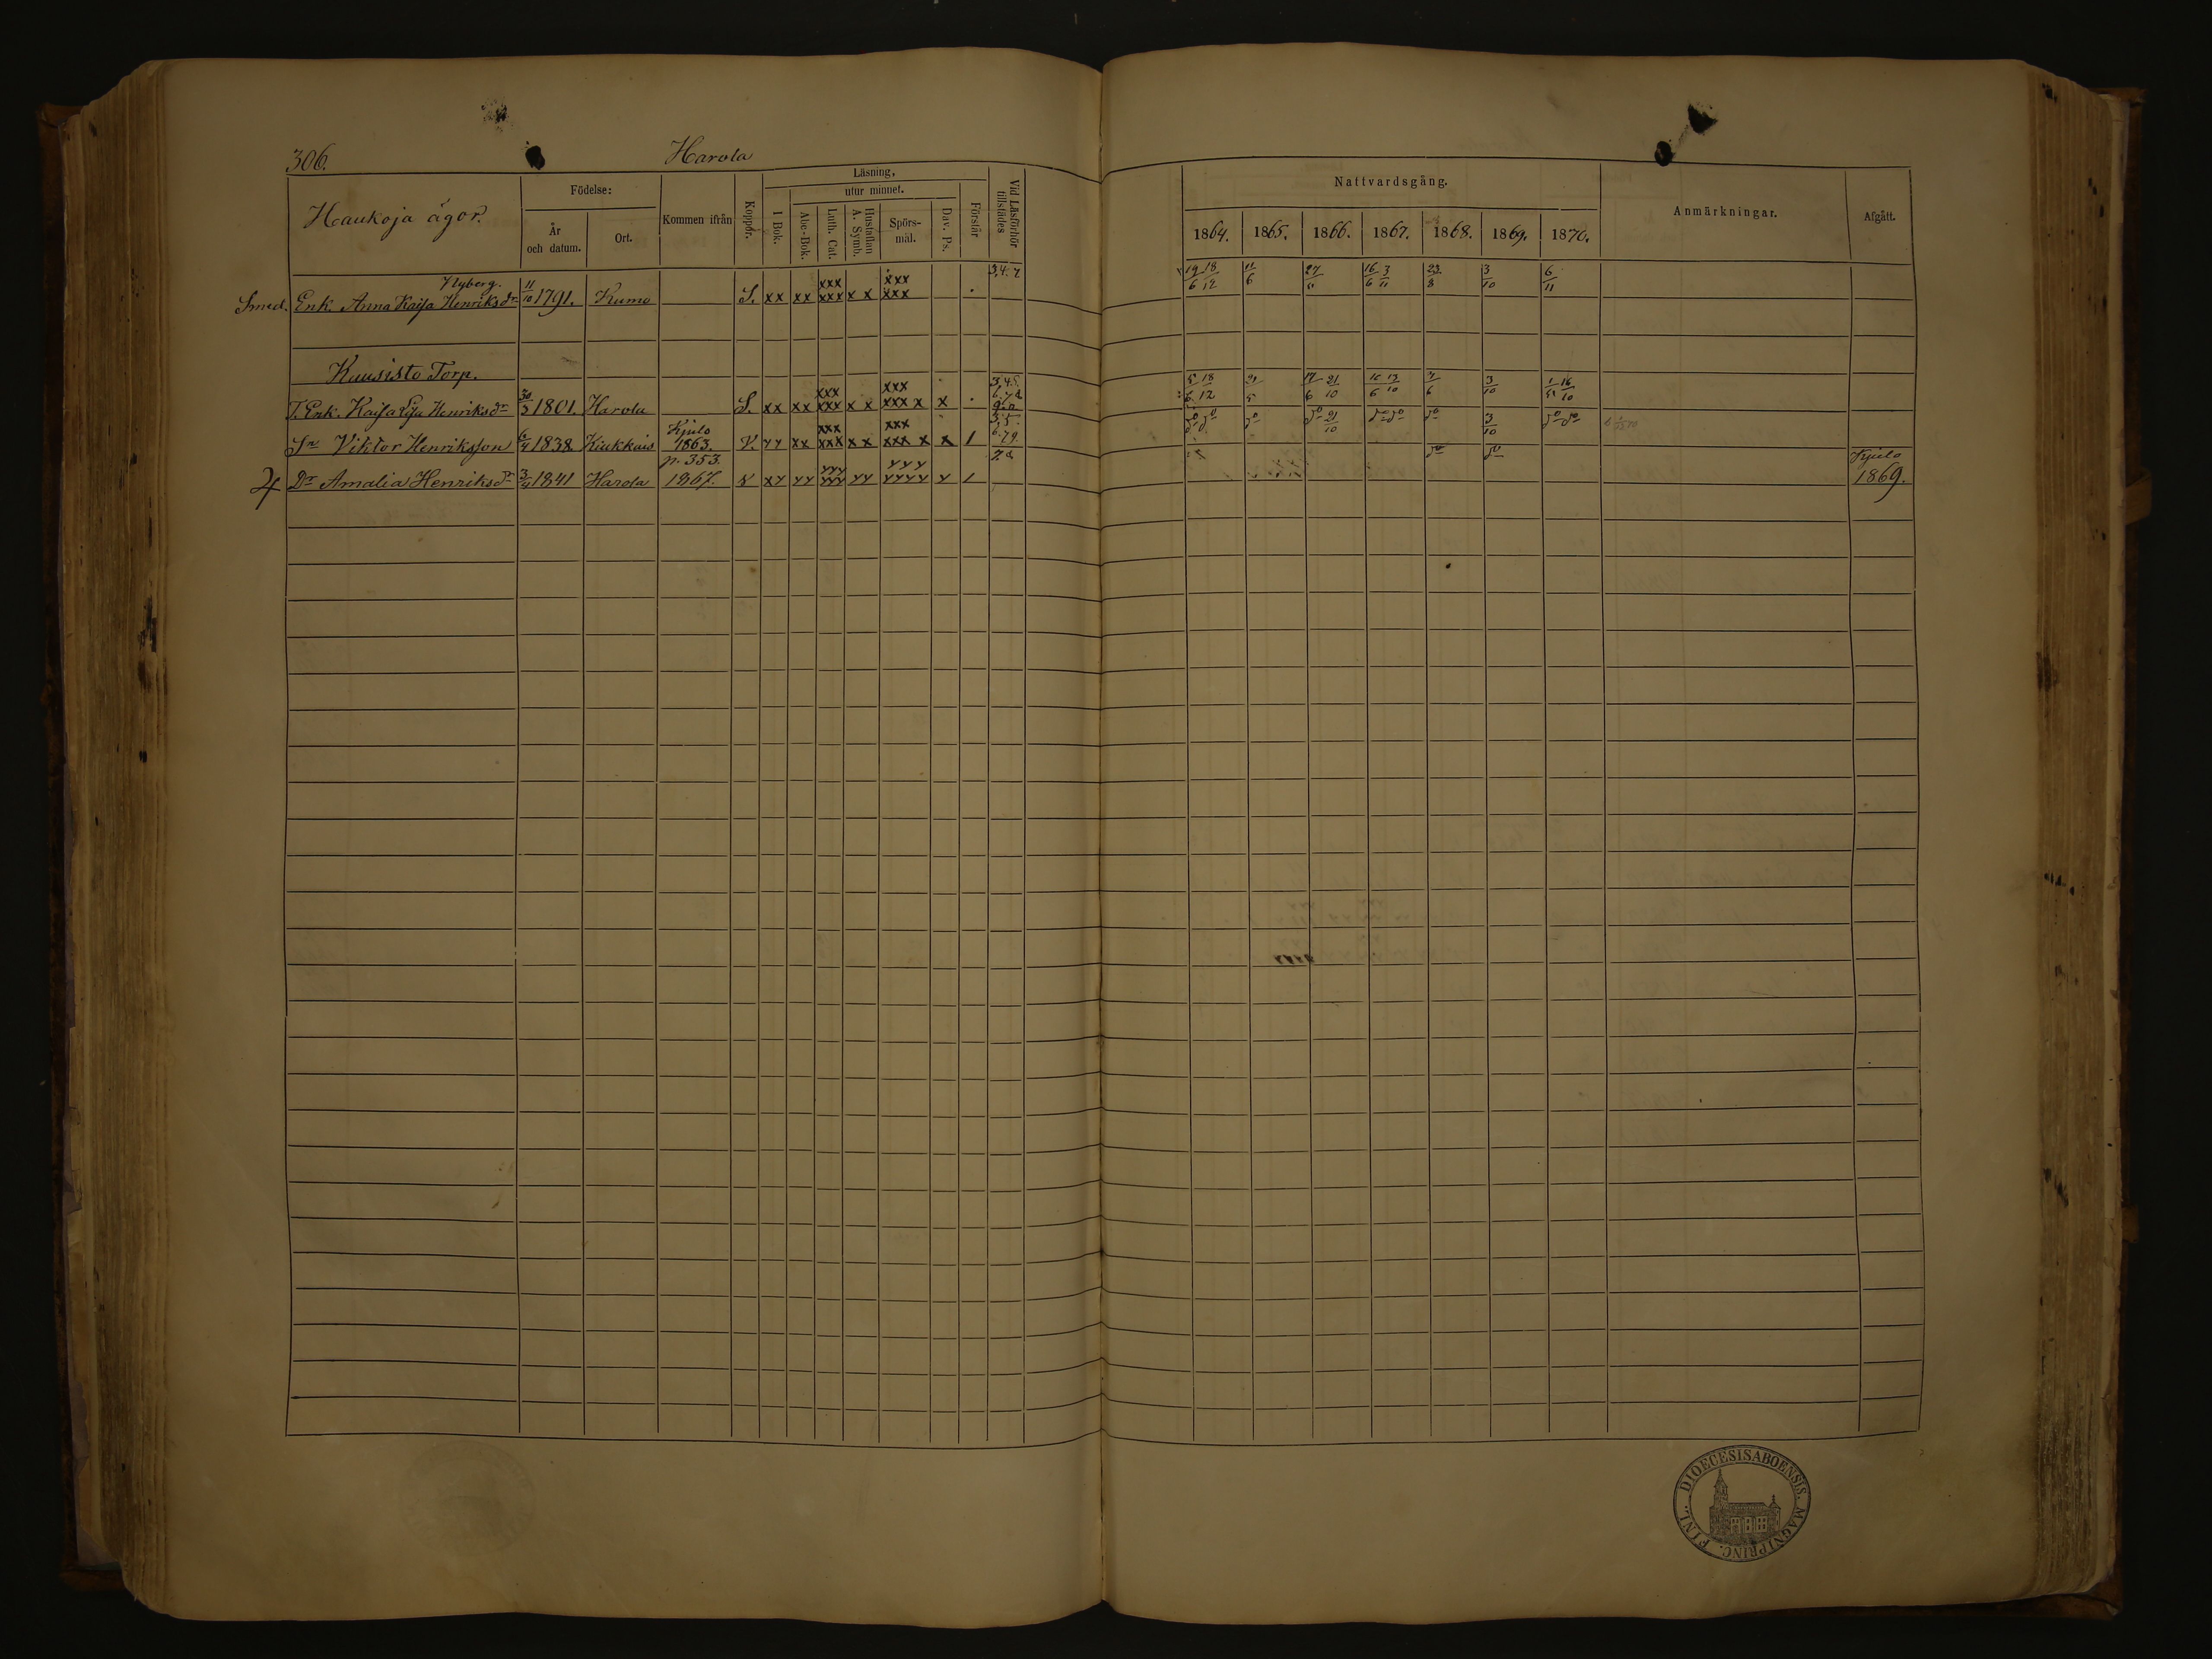 306.
Harola
Haukoja ägor.
Födelse:
År och datum.
Ort.
Kommen ifrån
Koppor.
Läsning,
utur minnet.
I Bok.
Abc-Bok.
Luth. Cat.
Hustaflan A. Symb.
Spörs-mål.
Dav. Ps.
Förstår
Vid Läsförhör tillstädes
Nattvardsgång.
1864. 1865. 1866. 1867. 1868. 1869. 1870.
Anmärkningar.
Afgått.
Nyberg.
Smed. Enk. Anna Kaisa Henriksdr 11/10 1791. Kumo S. xx xx xxx xxx x x xxx xxx 3.4.7. 19/6 18/12 11/6 27/11 16/6 3/11 23/8 3/10 6/11
Kuusisto Torp.
T. Enk. Kaisa Lisa Henriksdr 30/3 1801. Harola S. xx xx xxx xxx x x xxx xxx x x 5/6 18/12 17/6 21/10 16/6 13/10 7/6 3/10 16/10
Sn Viktor Henriksson 6/4 1838 Kiukkais Kjulo 1863. V. xx xx xxx xxx x x xxx xxx x x 1 do do do do 21/10 do do do 3/10 do do
Dr Amalia Henriksdr 3/4 1841 Harola p. 353. 1867. xx xx xxx xxx xx xxx xxxx x 1 do do Kjulo 1869.
DIOECESIS ABOENSIS. MAGNI PRINC. FINL.